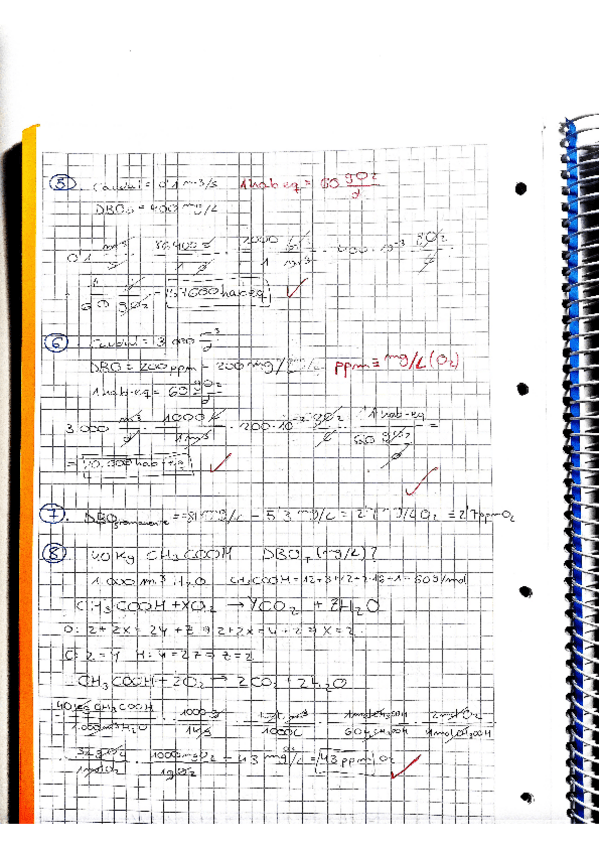 5 Caudal = 0'1 m³/s 1 hab eq = 60 gO₂/d
DBO₅ = 400 mg/L
0'1 m³/s · 86.400 s/1 d · 1000 L/1 m³ · 400 · 10⁻³ gO₂/L ·
60 gO₂ hab eq ✓
6 Caudal = 3 000 m³/d
DBO = 200 ppm = 200 mg/L ppm ≡ mg/L (O₂)
1 hab-eq = 60 gO₂/d
3 000 m³/d · 1000 L/1 m³ · 200·10⁻³ gO₂/L · 1 hab-eq/60 gO₂/d =
= 10.000 hab-eq ✓
7. DBO mg/L – 5'3 mg/L = 2'7 mg/L O₂ = 2'7 ppm O₂ ✓
8 40 Kg CH₃COOH DBO (mg/L)?
1.000 m³ H₂O CH₃COOH = 60 g/mol
CH₃COOH + XO₂ → YCO₂ + ZH₂O
O: 2+2X = 2Y+Z → 2+2X = 4+2 → X=2
C: 2=Y H: 4=2Z → Z=2
CH₃COOH + 2O₂ → 2CO₂ + 2H₂O
40 Kg CH₃COOH/1.000 m³ H₂O · 1000 g/1 Kg · 1 m³/1000 L · 1 mol CH₃COOH/60 g CH₃COOH · 2 mol O₂/1 mol CH₃COOH
· 32 gO₂/1 mol O₂ · 1000 mg O₂/1 gO₂ = 43 mg/L = 43 ppm O₂ ✓